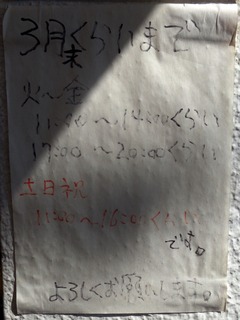 3月末くらいまで
火〜金
11:00〜14:00くらい
17:00〜20:00くらい
土日祝
11:00〜16:00くらい
です。
よろしくお願いします。